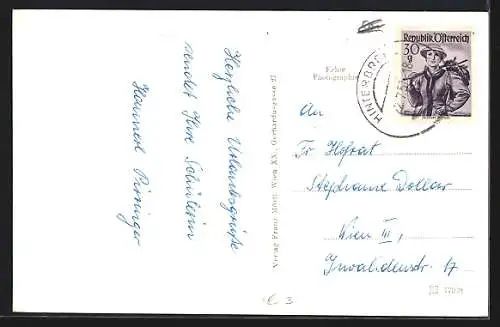 Herzliche Urlaubsgrüße
sendet Ihre Schülerin
Hannerl
Verlag Franz Mörtl, Wien XX., Gerhardusgasse 27
Echte
Photographie
Republik Österreich
30 g
HINTERBR
An
Fr Hofrat
Stephanie Dollar
Wien III,
Invalidenstr. 17
€ 3